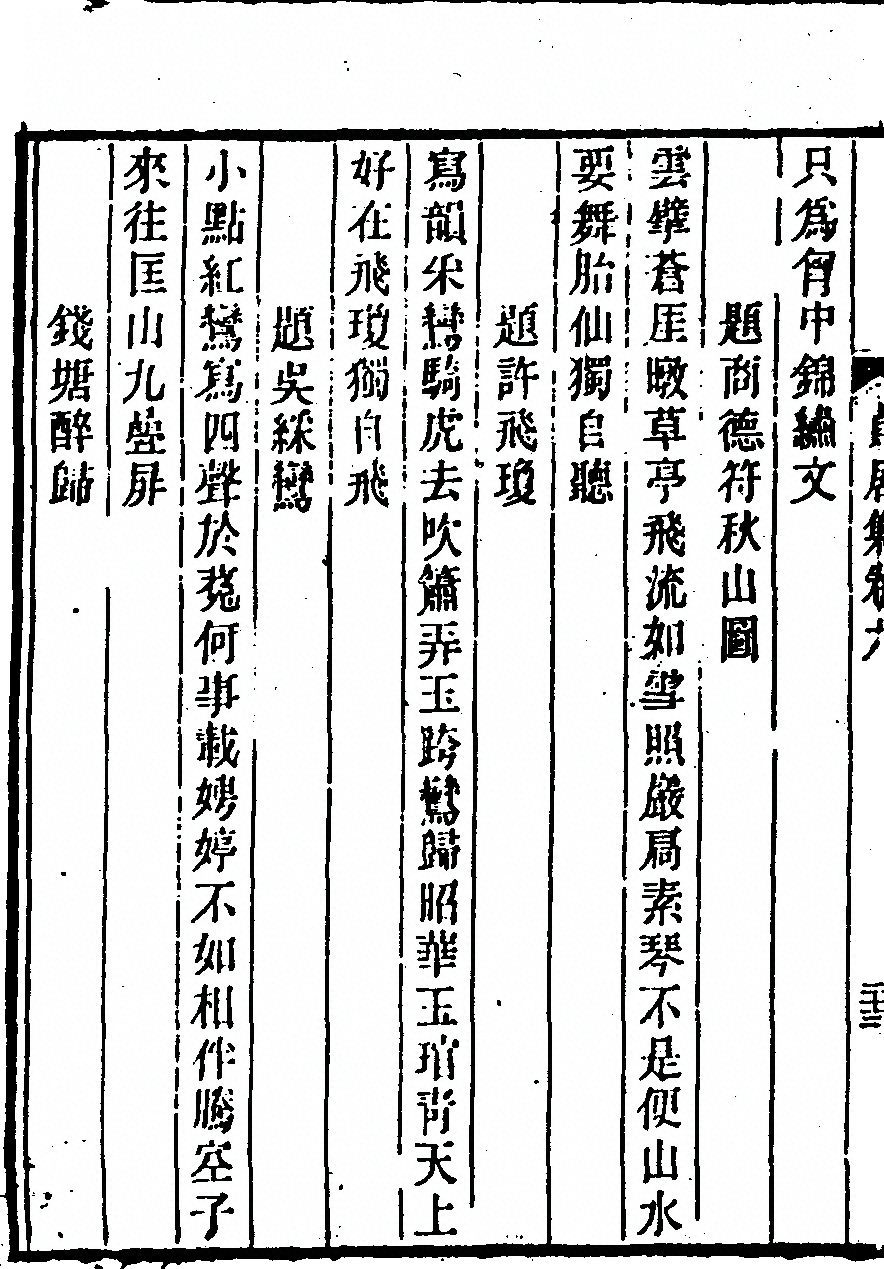 只為胷中錦繡文
題商德符秋山圖
雲壁蒼厓暾草亭飛流如雪照巖扃素琴不是便山水
要舞胎仙獨自聽
題許飛瓊
寫韻采鸞騎虎去吹簫弄玉跨鸞歸昭華玉琯青天上
好在飛瓊獨自飛
題吳綵鸞
小點紅鸞寫四聲於菟何事載娉婷不如相伴騰空子
來往匡山九疊屏
錢塘醉歸